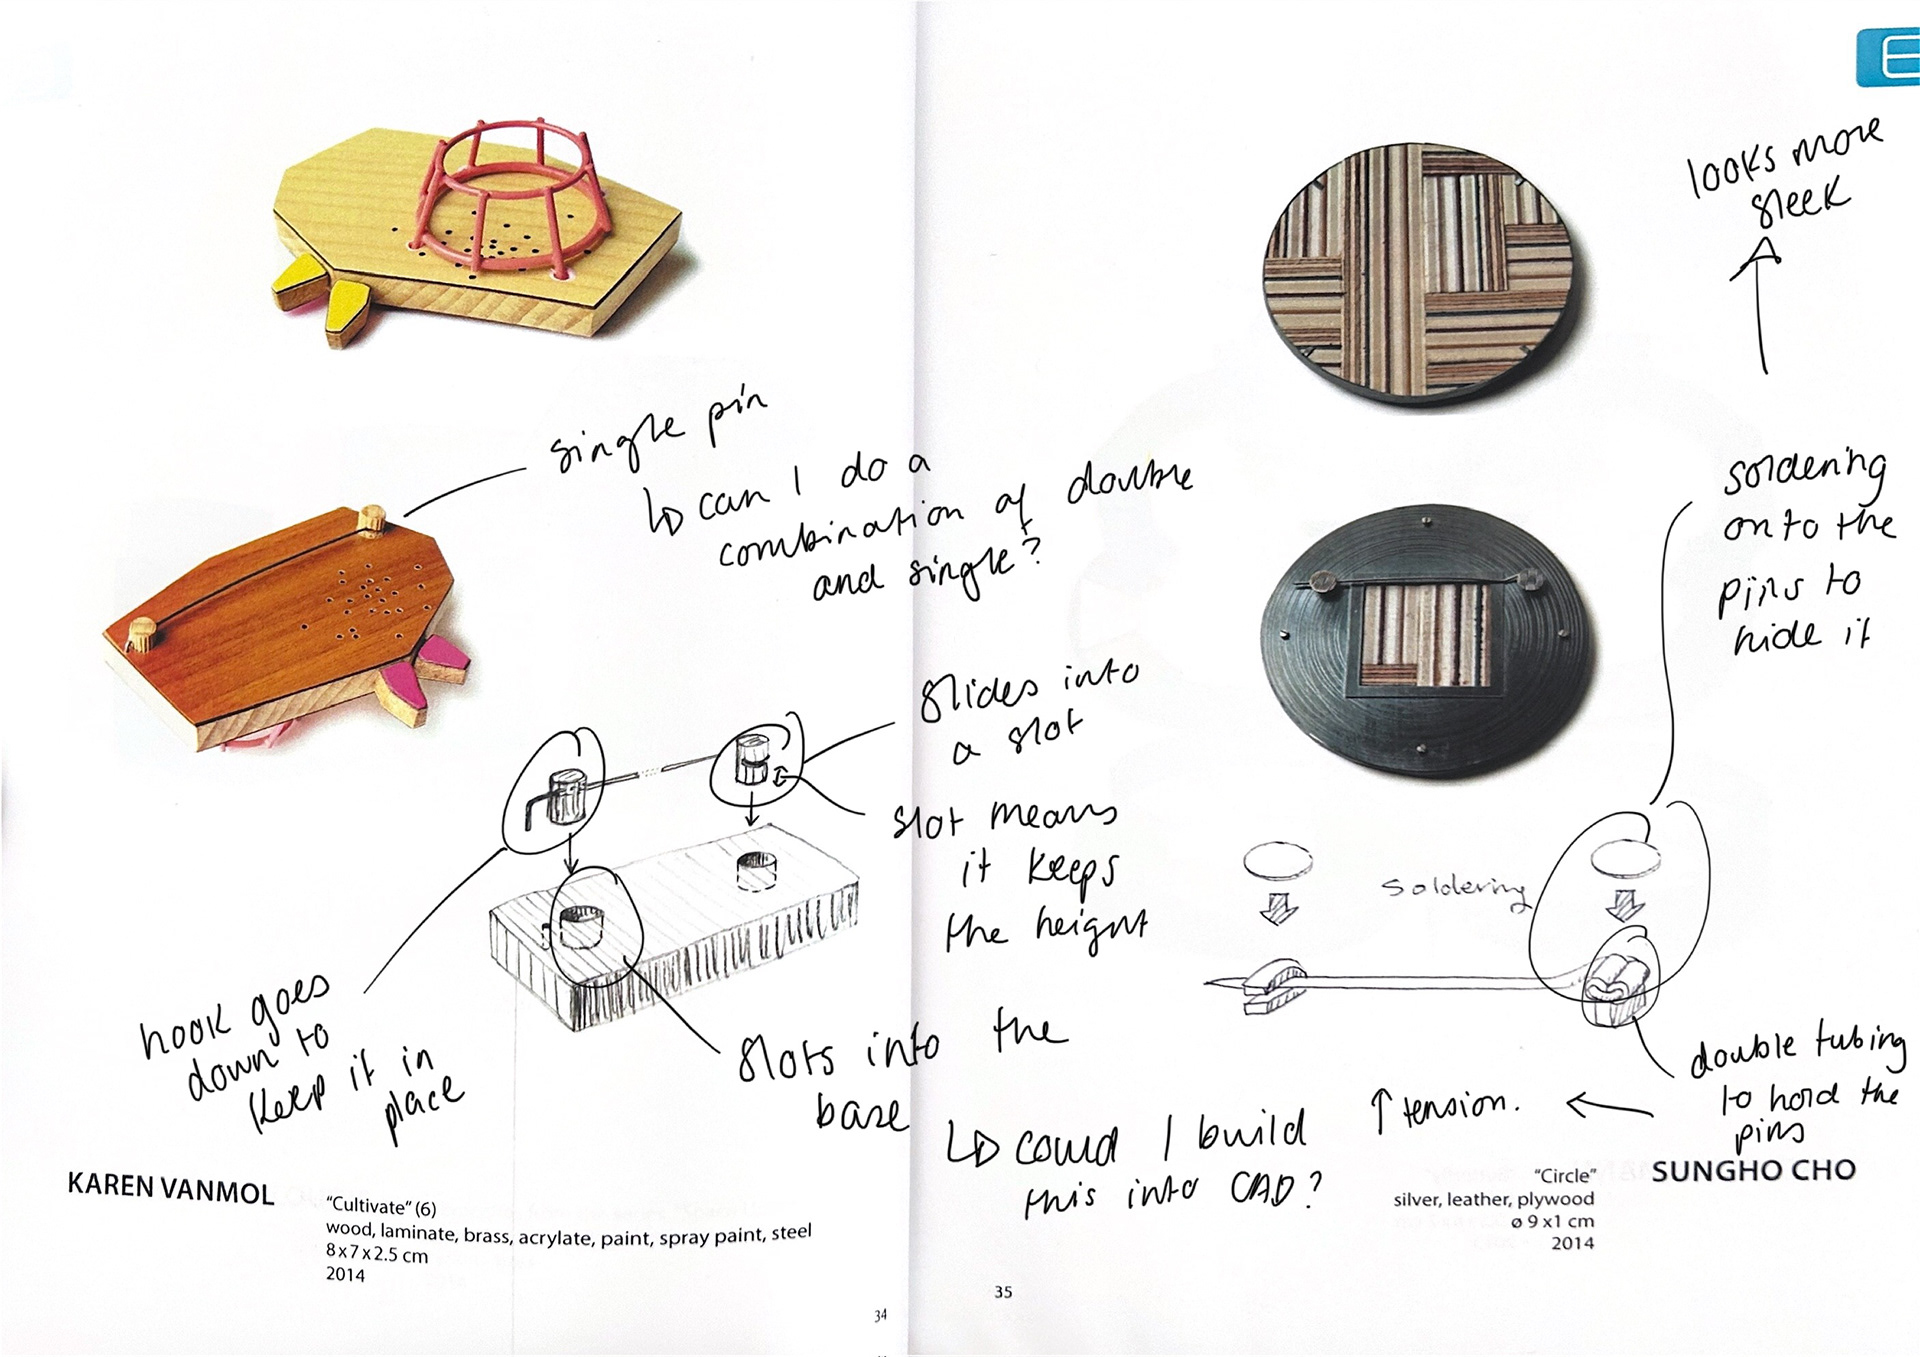 E
looks more
sleek
single pin
↳ can I do a
combination of double
and single?
soldering
onto the
pins to
hide it
slides into
a slot
slot means
it keeps
the height
soldering
hook goes
down to
keep it in
place
slots into the
base
↳ could I build
this into CAD?
double tubing
to hold the
pins
↑ tension.
KAREN VANMOL
"Cultivate" (6)
wood, laminate, brass, acrylate, paint, spray paint, steel
8x7x2.5 cm
2014
34
SUNGHO CHO
"Circle"
silver, leather, plywood
ø 9 x1 cm
2014
35